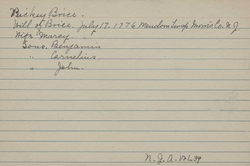 Rickey Brice.
Will of Brice July 17. 1776 Mendom Twp Morris Co. N.J.
Wife Marcy.
Sons. Benjamin
" Cornelius.
" John.
N.J.A. Vol. 34